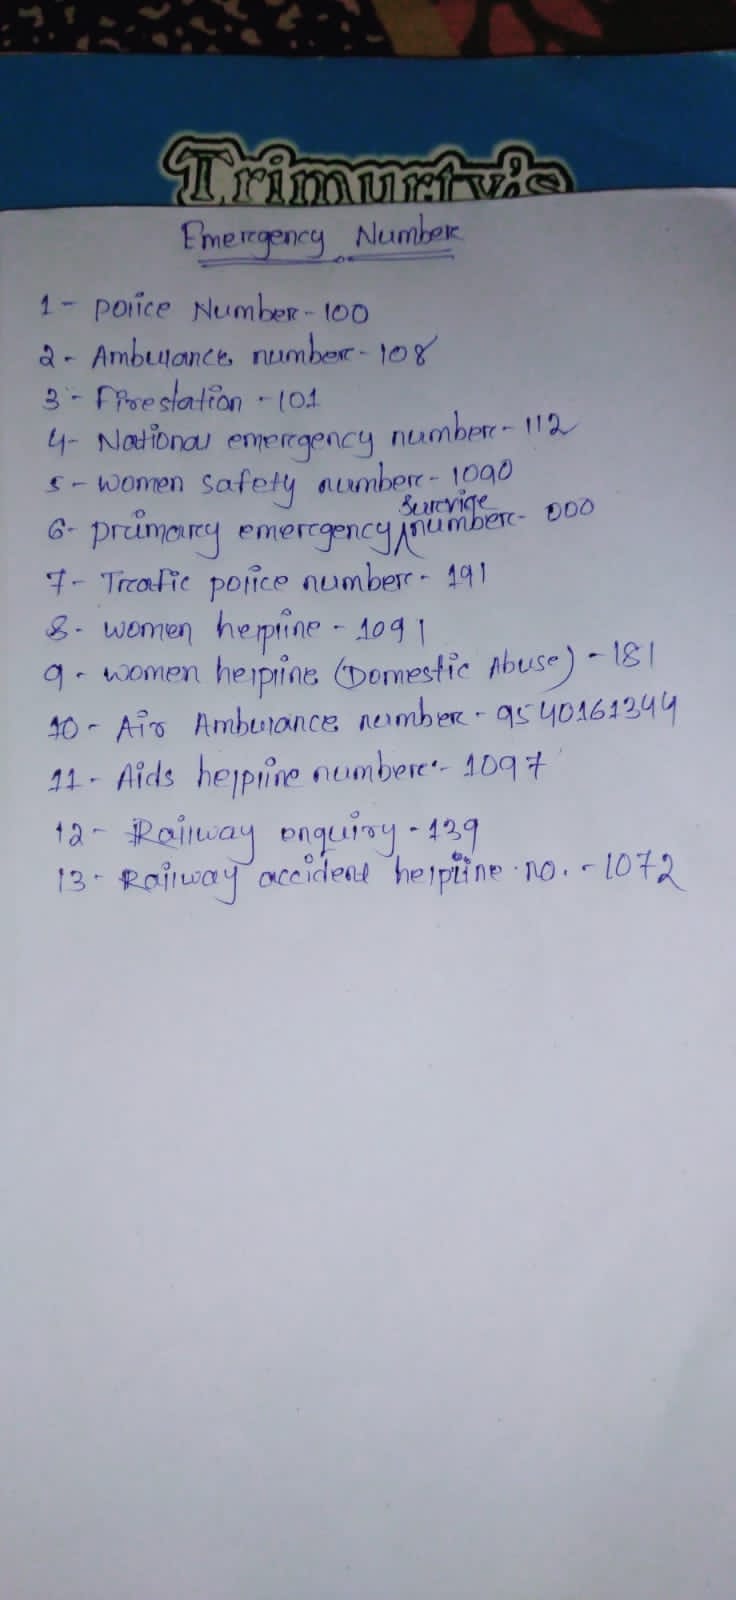 Trimurty's
Emergency Number
1- police Number - 100
2- Ambulance number - 108
3- Firestation - 101
4- National emergency number - 112
5- women safety number - 1090
6- primary emergency survige number - 000
7- Trafic police number - 191
8- women helpline - 1091
9- women helpline (Domestic Abuse) - 181
10- Air Ambulance number - 9540161344
11- Aids helpline number - 1097
12- Railway enquiry - 139
13- Railway accident helpline no. - 1072